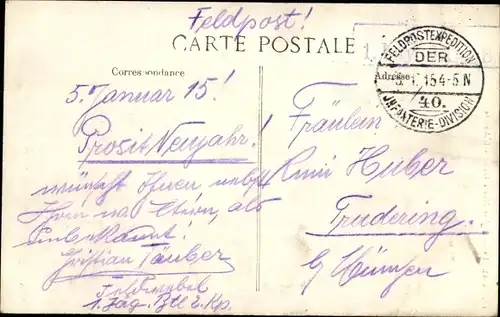 Feldpost!
CARTE POSTALE
Correspondance
Adresse
FELDPOSTEXPEDITION
DER
5.1.15 4-5 N
40.
INFANTERIE-DIVISION
5. Januar 15!
Prosit Neujahr!
wünscht Ihnen nebst
als
Unbekannt!
Christian Täuber
Feldwebel
1. Jäg. Btl 2. Kp.
Fräulein
Huber
Trudering.
b/ München